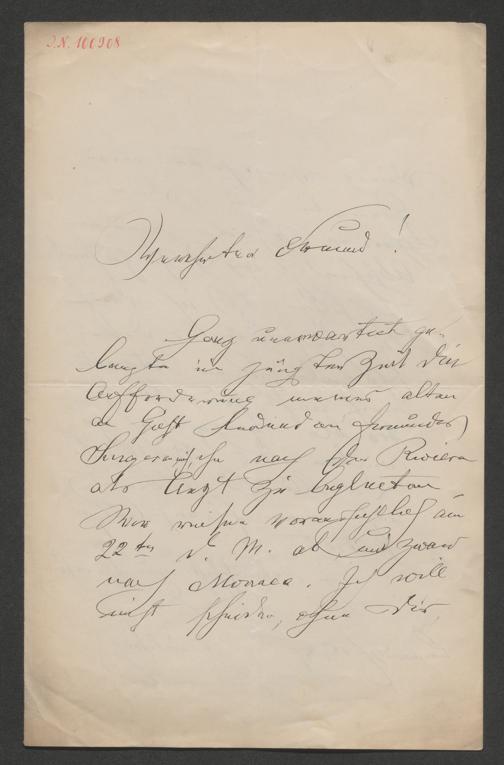 J.N. 100908
Verehrter Freund!
Ganz unerwartet ge-
langte in jüngster Zeit die
Aufforderung meines alten
an Gicht leidenden Freundes
ihn nach der Riviera
als Arzt zu begleiten
Wir reisen voraussichtlich am
22ten d. M. ab und zwar
nach Monaco. Ich will
nicht scheiden, ohne Dir,